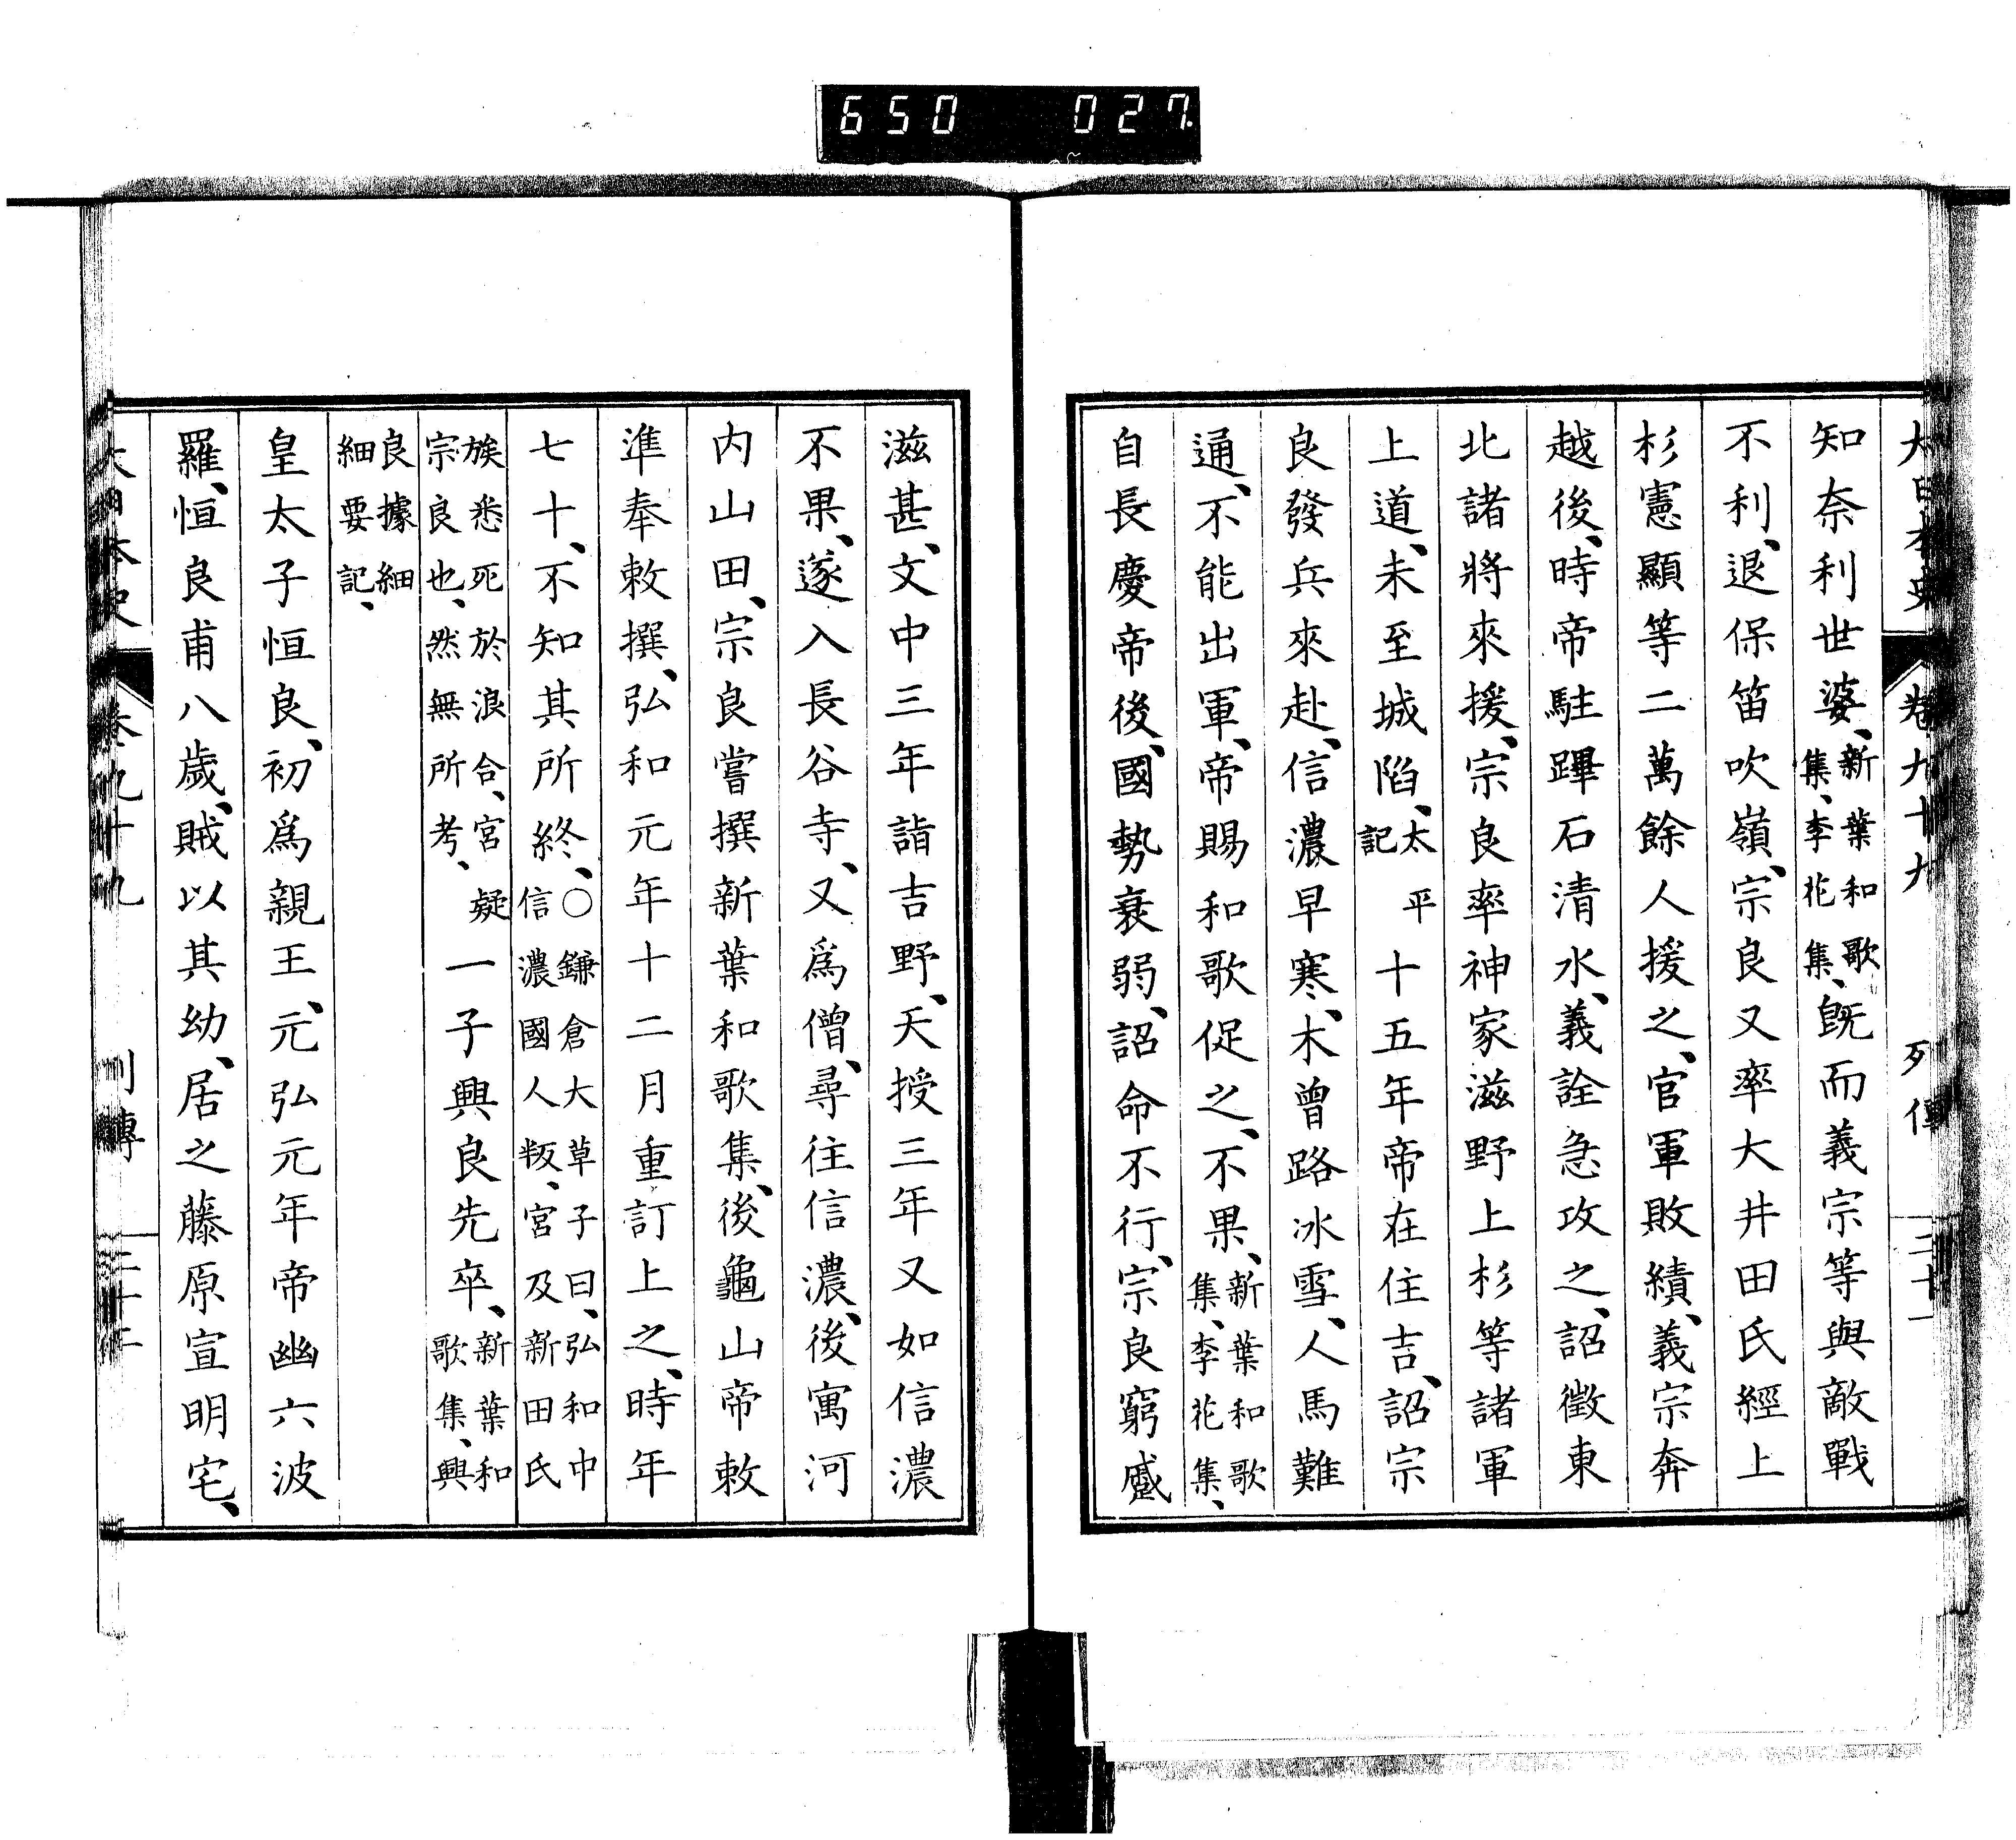 650 027
大日本史 卷九十九 列傳 二十一
知奈利世婆、新葉和歌集、李花集、既而義宗等與敵戰
不利、退保笛吹嶺、宗良又率大井田氏經上
杉憲顯等二萬餘人援之、官軍敗績、義宗奔
越後、時帝駐蹕石清水、義詮急攻之、詔徵東
北諸將來援、宗良率神家滋野上杉等諸軍
上道、未至城陷、太平記十五年帝在住吉、詔宗
良發兵來赴、信濃早寒、木曾路冰雪、人馬難
通、不能出軍、帝賜和歌促之、不果、新葉和歌集、李花集、
自長慶帝後、國勢衰弱、詔命不行、宗良窮蹙
滋甚、文中三年詣吉野、天授三年又如信濃
不果、遂入長谷寺、又爲僧、尋往信濃、後寓河
内山田、宗良嘗撰新葉和歌集、後龜山帝敕
準奉敕撰、弘和元年十二月重訂上之、時年
七十、不知其所終、○鎌倉大草子曰、弘和中信濃國人叛、宮及新田氏
族悉死於浪合、宮疑宗良也、然無所考、一子興良先卒、新葉和歌集、興
良據細細要記、
皇太子恒良、初爲親王、元弘元年帝幽六波
羅、恒良甫八歲、賊以其幼、居之藤原宣明宅、
大日本史 卷九十九 列傳